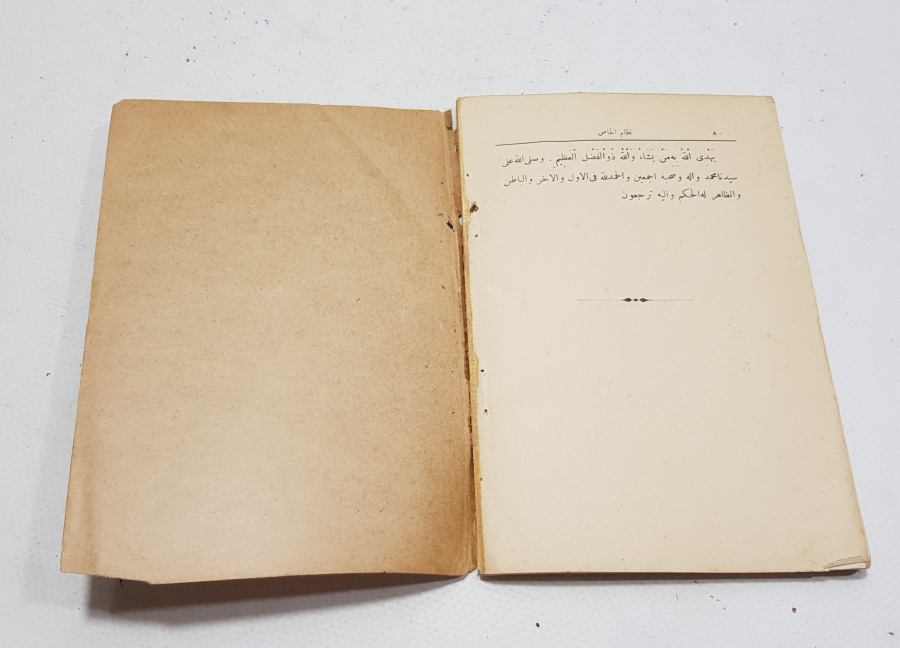 ٨٠ نظام الخاص
يَهْدِى اللّٰهُ بِهِ مَنْ يَشَاءُ وَاللّٰهُ ذُو الْفَضْلِ الْعَظِيمِ . وصلى الله على
سيدنا محمد واله وصحبه اجمعين والحمد لله فى الاول والاخر والباطن
والظاهر له الحكم واليه ترجعون